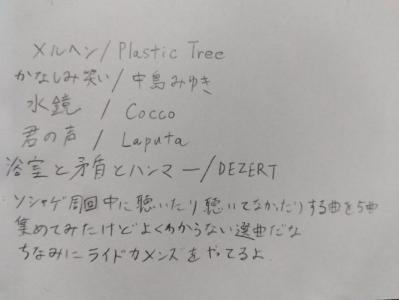 メルヘン/Plastic Tree
かなしみ笑い/中島みゆき
水鏡/Cocco
君の声/Laputa
浴室と矛盾とハンマー/DEZERT
ソシャゲ周回中に聴いたり聴いてなかったりする曲を5曲
集めてみたけどよくわからない選曲だな
ちなみにライドカメンズをやってるよ